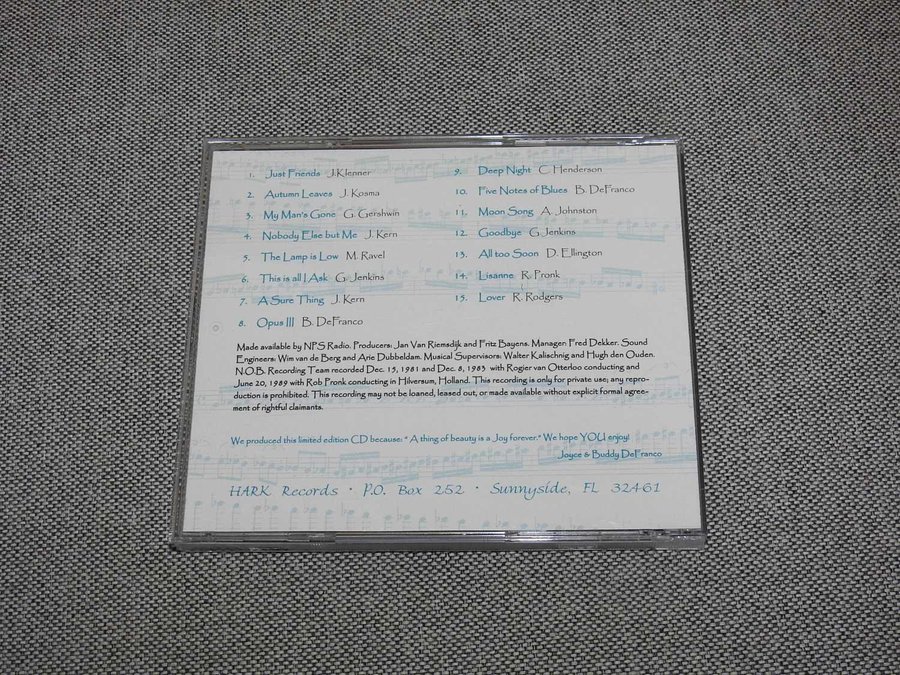 1. Just Friends J.Klenner
2. Autumn Leaves J. Kosma
3. My Man's Gone G. Gershwin
4. Nobody Else but Me J. Kern
5. The Lamp is Low M. Ravel
6. This is all I Ask G. Jenkins
7. A Sure Thing J. Kern
8. Opus III B. DeFranco
9. Deep Night C. Henderson
10. Five Notes of Blues B. DeFranco
11. Moon Song A. Johnston
12. Goodbye G. Jenkins
13. All too Soon D. Ellington
14. Lisanne R. Pronk
15. Lover R. Rodgers
Made available by NPS Radio. Producers: Jan Van Riemsdijk and Fritz Bayens. Manager: Fred Dekker. Sound
Engineers: Wim van de Berg and Arie Dubbeldam. Musical Supervisors: Walter Kalischnig and Hugh den Ouden.
N.O.B. Recording Team recorded Dec. 15, 1981 and Dec. 8, 1983 with Rogier van Otterloo conducting and
June 20, 1989 with Rob Pronk conducting in Hilversum, Holland. This recording is only for private use; any repro-
duction is prohibited. This recording may not be loaned, leased out, or made available without explicit formal agree-
ment of rightful claimants.
We produced this limited edition CD because: " A thing of beauty is a Joy forever." We hope YOU enjoy!
Joyce & Buddy DeFranco
HARK Records · P.O. Box 252 · Sunnyside, FL 32461